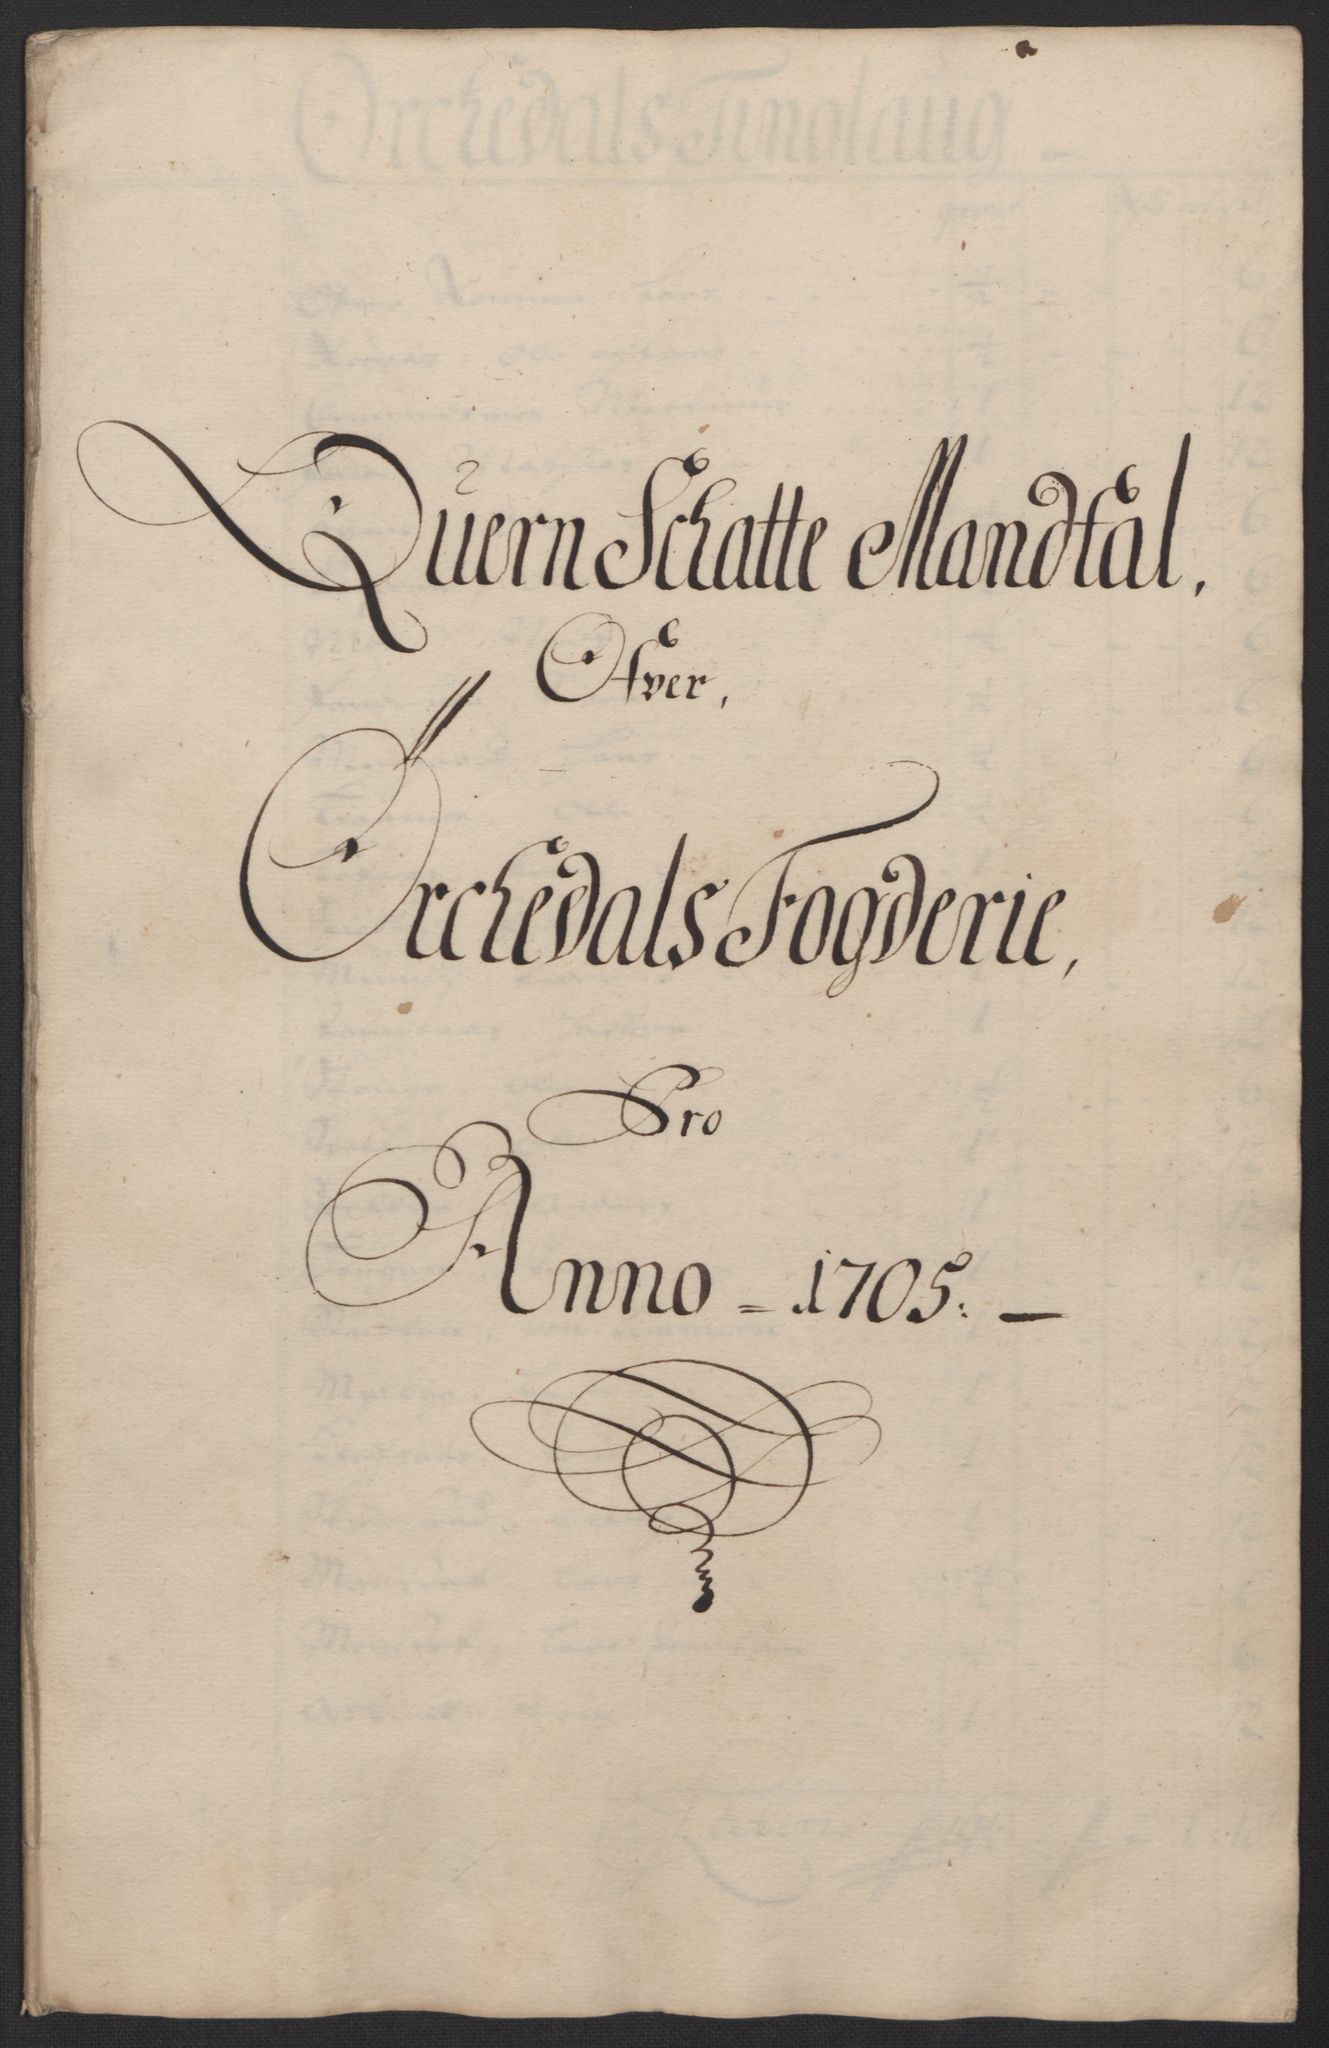 Quern Schatte Mandtal,
Ofver,
Orchedals Fogderie,
Pro
Anno = 1705. —